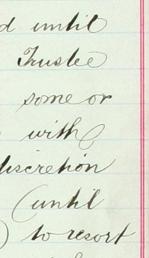 d until
Trustee
some or
with
discretion
(until
) to resort